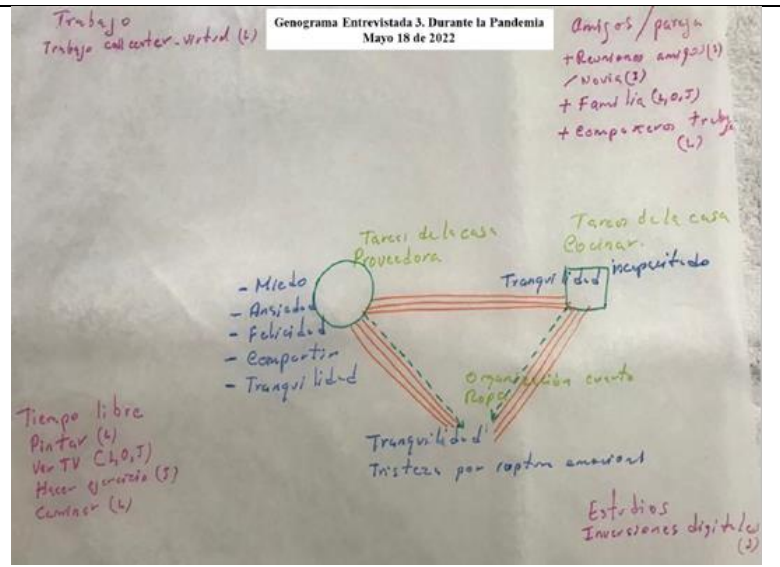 Genograma Entrevistada 3. Durante la Pandemia
Mayo 18 de 2022
Trabajo
Trabajo call center-virtual (L)
Amigos / pareja
+ Reuniones amigos (J)
/ Novia (J)
+ Familia (L,O,J)
+ Compañeros trabajo
(L)
Tareas de la casa
Proveedora
Tareas de la casa
Cocinar.
Tranquilidad
incapacitado
- Miedo
- Ansiedad
- Felicidad
- Compartir
- Tranquilidad
Organización cuarto
Ropa
Tranquilidad
Tristeza por ruptura emocional
Tiempo libre
Pintar (L)
Ver TV (L,O,J)
Hacer ejercicio (J)
Caminar (L)
Estudios
Inversiones digitales
(J)